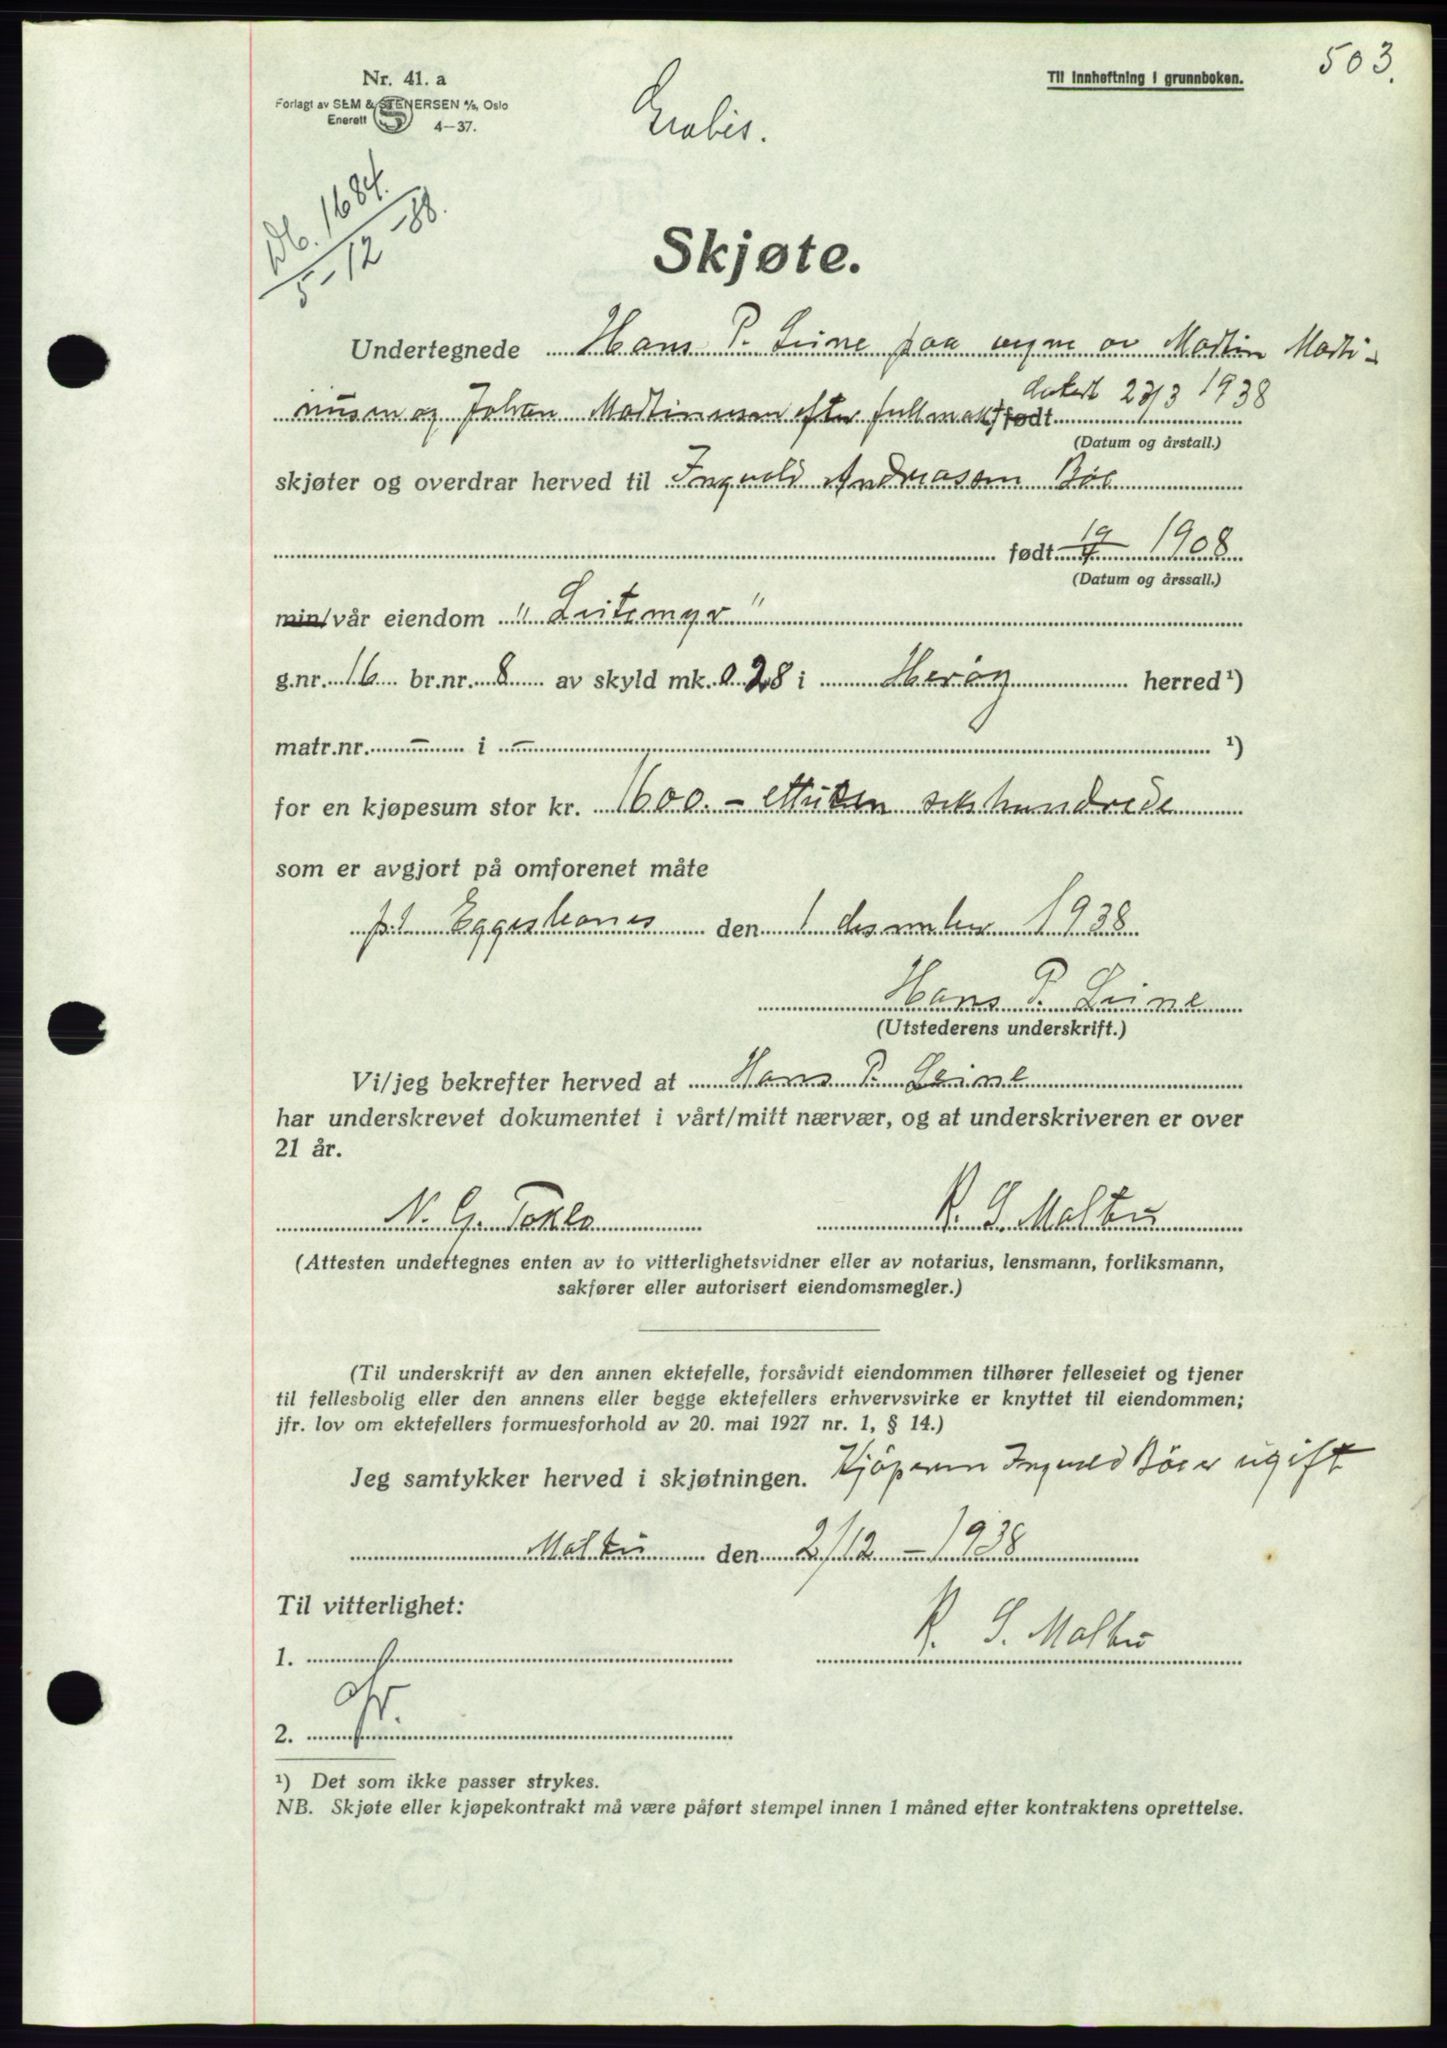 503.
Nr. 41. a
Til innheftning i grunnboken.
Forlagt av SEM & STENERSEN A/S, Oslo
Enerett 4—37.
Gratis.
Db. 1684.
5-12-38.
Skjøte.
Undertegnede Hans P. Leine paa vegne av Martin Marti-
nusen og Johan Martinusen efter fullmakt datert 23/3 1938
født
(Datum og årstall.)
skjøter og overdrar herved til Ingvald Andreassen Böe
født 19/7 1908
(Datum og årssall.)
min/vår eiendom "Leitemyr"
g.nr. 16 br.nr. 8 av skyld mk. 0.28 i Heröy herred ¹)
matr.nr. — i — ¹)
for en kjøpesum stor kr. 1600.- ettusen sekshundrede
som er avgjort på omforenet måte
p.t. Eggesbones den 1 desember 1938
Hans P. Leine
(Utstederens underskrift.)
Vi/jeg bekrefter herved at Hans P. Leine
har underskrevet dokumentet i vårt/mitt nærvær, og at underskriveren er over
21 år.
N. G. R. S. Maltu
(Attesten undertegnes enten av to vitterlighetsvidner eller av notarius, lensmann, forliksmann,
sakfører eller autorisert eiendomsmegler.)
(Til underskrift av den annen ektefelle, forsåvidt eiendommen tilhører felleseiet og tjener
til fellesbolig eller den annens eller begge ektefellers erhvervsvirke er knyttet til eiendommen;
jfr. lov om ektefellers formuesforhold av 20. mai 1927 nr. 1, § 14.)
Jeg samtykker herved i skjøtningen. Kjöperen Ingvald Böe er ugift
Maltu den 2/12 - 1938
Til vitterlighet:
R. S. Maltu
1.
2.
¹) Det som ikke passer strykes.
NB. Skjøte eller kjøpekontrakt må være påført stempel innen 1 måned efter kontraktens oprettelse.